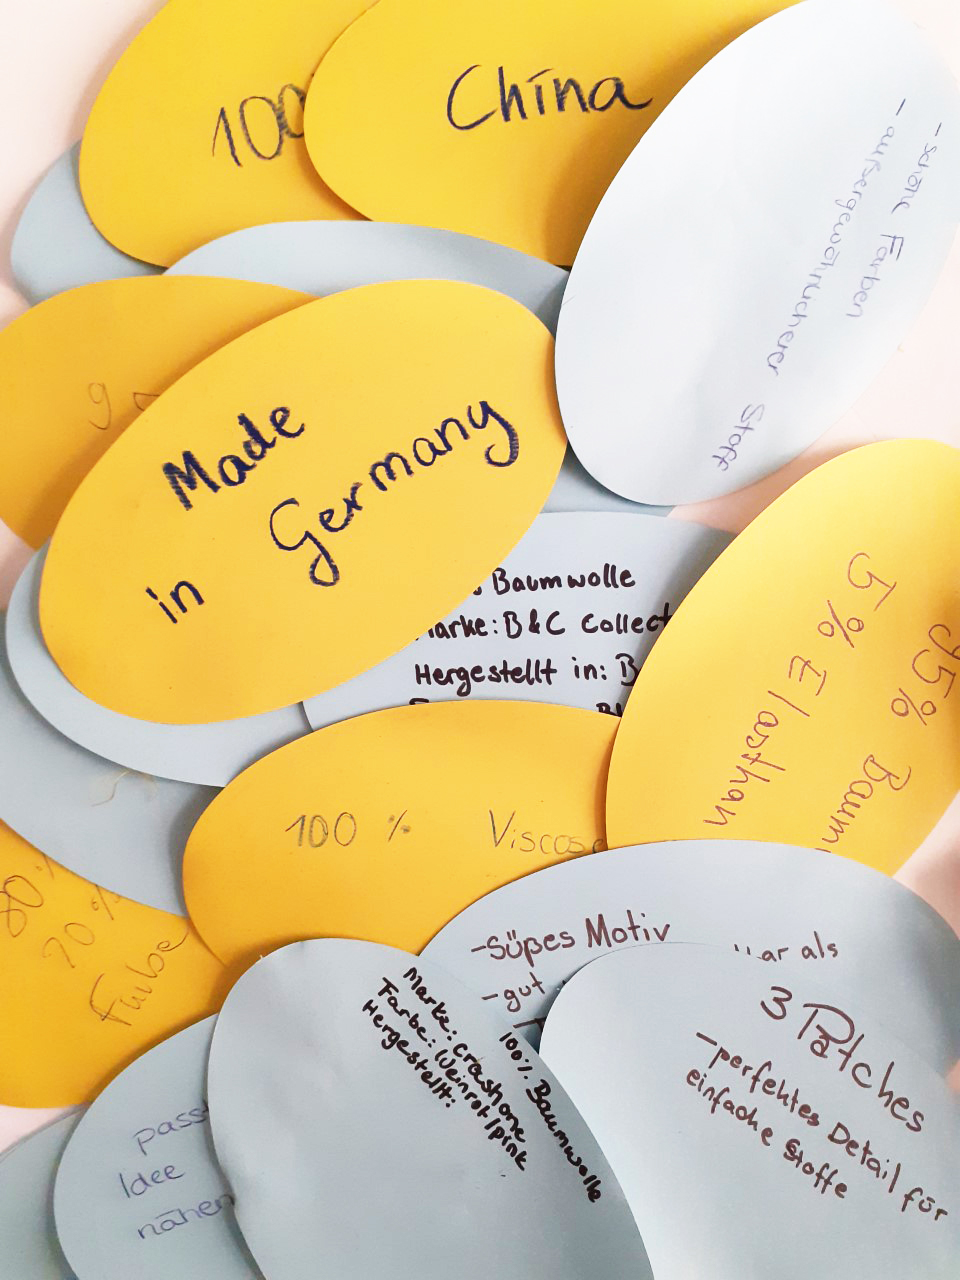 100
China
- schöne Farben
- außergewöhnlicher Stoff
9
Made
in Germany
Baumwolle
Marke: B&C Collect
Hergestellt in: B
95% Baum
5% Elasthan
100 % Viscose
80%
20%
Farbe
-süßes Motiv
ar als
-gut
3 Patches
-perfektes Detail für
einfache Stoffe
100% Baumwolle
Marke: crashone
Farbe: Weinrot/pink
Hergestellt:
pass
Idee
nähen